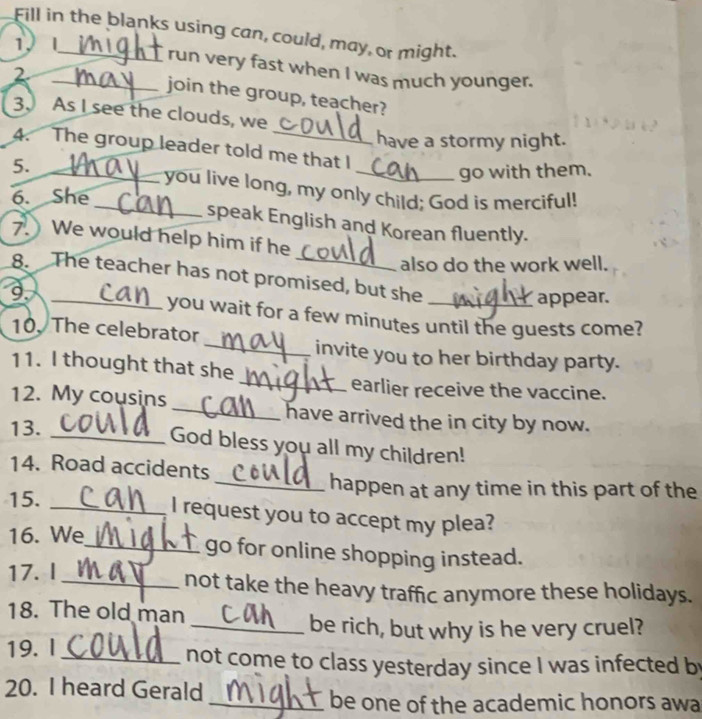 Fill in the blanks using can, could, may, or might.
1. I might run very fast when I was much younger.
2. may join the group, teacher?
3. As I see the clouds, we could have a stormy night.
4. The group leader told me that I can go with them.
5. may you live long, my only child; God is merciful!
6. She can speak English and Korean fluently.
7. We would help him if he could also do the work well.
8. The teacher has not promised, but she might appear.
9. can you wait for a few minutes until the guests come?
10. The celebrator may invite you to her birthday party.
11. I thought that she might earlier receive the vaccine.
12. My cousins can have arrived the in city by now.
13. could God bless you all my children!
14. Road accidents could happen at any time in this part of the
15. can I request you to accept my plea?
16. We might go for online shopping instead.
17. I may not take the heavy traffic anymore these holidays.
18. The old man can be rich, but why is he very cruel?
19. I could not come to class yesterday since I was infected by
20. I heard Gerald might be one of the academic honors awa